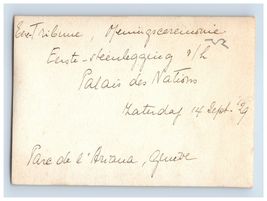 Ere-Tribune, Openingsceremonie
Eerste-steenlegging v/h
Palais des Nations
Zaterdag 14 Sept. '29
Parc de l'Ariana, Genève